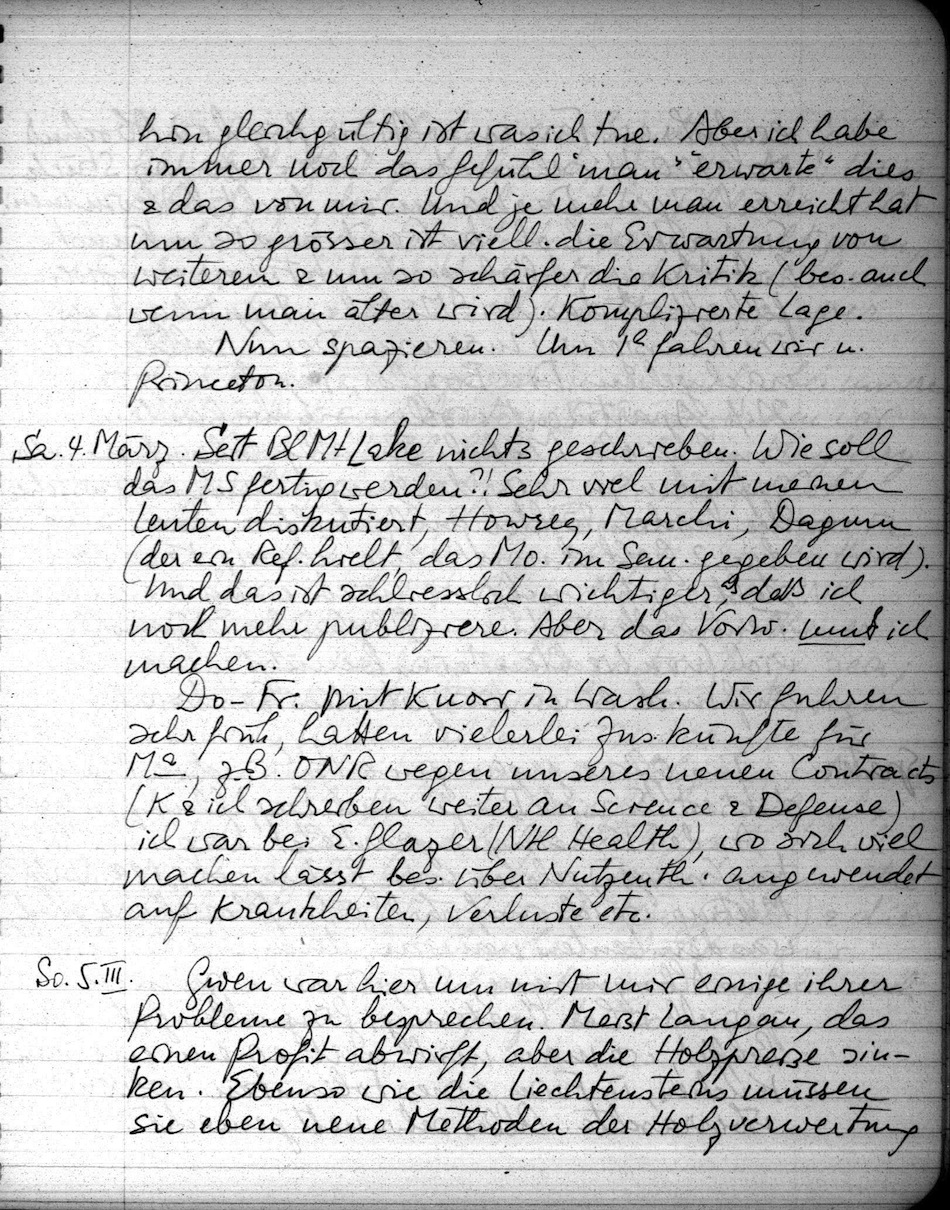 hin gleichgültig ist was ich tue. Aber ich habe
immer noch das Gefühl "man" "erwarte" dies
& das von mir. Und je mehr man erreicht hat
um so grösser ist viell. die Erwartung von
weiterem & um so schärfer die Kritik (bes. auch
wenn man älter wird). Komplizierte Lage.
Nun spazieren. Um 1h fahren wir n.
Princeton.
Sa. 4. März. Seit Bl Mt Lake nichts geschrieben. Wie soll
das MS fertig werden?! Sehr viel mit meinen
Leuten diskutiert, Howrey, Marchi, Dagum
(der ein Ref. hielt, das Mo. im Sem. gegeben wird).
Und das ist schliesslich wichtiger, daß ich
noch mehr publiziere. Aber das Vorw. muß ich
machen.
Do-Fr. mit Knorr in Wash. Wir fuhren
sehr früh, hatten vielerlei Zus.künfte für
Ma, z.B. ONR wegen unseres neuen Contracts
(K & ich schreiben weiter an Science & Defense)
ich war bei E. Glazer (NH Health), wo sich viel
machen lässt bes. über Nutzenth. angewendet
auf Krankheiten, Verluste etc.
So. 5. III. Gwen war hier um mit mir einige ihrer
Probleme zu besprechen. Meist Langau, das
einen Profit abwirft, aber die Holzpreise sin-
ken. Ebenso wie die Liechtensteins müssen
sie eben neue Methoden der Holzverwertung